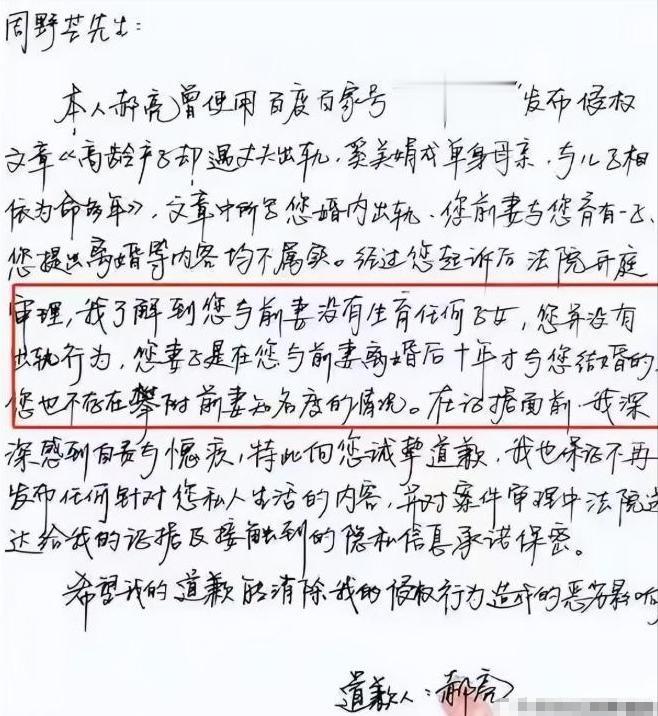 周野芒先生：
本人郝亮曾使用百度百家号 "发布侵权
文章《高龄产子却遇丈夫出轨，奚美娟成单身母亲，与儿子相
依为命多年》，文章中所写您婚内出轨、您前妻与您育有一子、
您提出离婚等内容均不属实。经过您起诉后法院开庭
审理，我了解到您与前妻没有生育任何子女，您并没有
出轨行为，您妻子是在您与前妻离婚后十年才与您结婚的，
您也不存在攀附前妻知名度的情况。在证据面前，我深
深感到自责与愧疚，特此向您诚挚道歉，我也保证不再
发布任何针对您私人生活的内容，并对案件审理中法院送
达给我的证据及接触到的隐私信息承诺保密。
希望我的道歉能消除我的侵权行为造成的恶劣影响
道歉人：郝亮